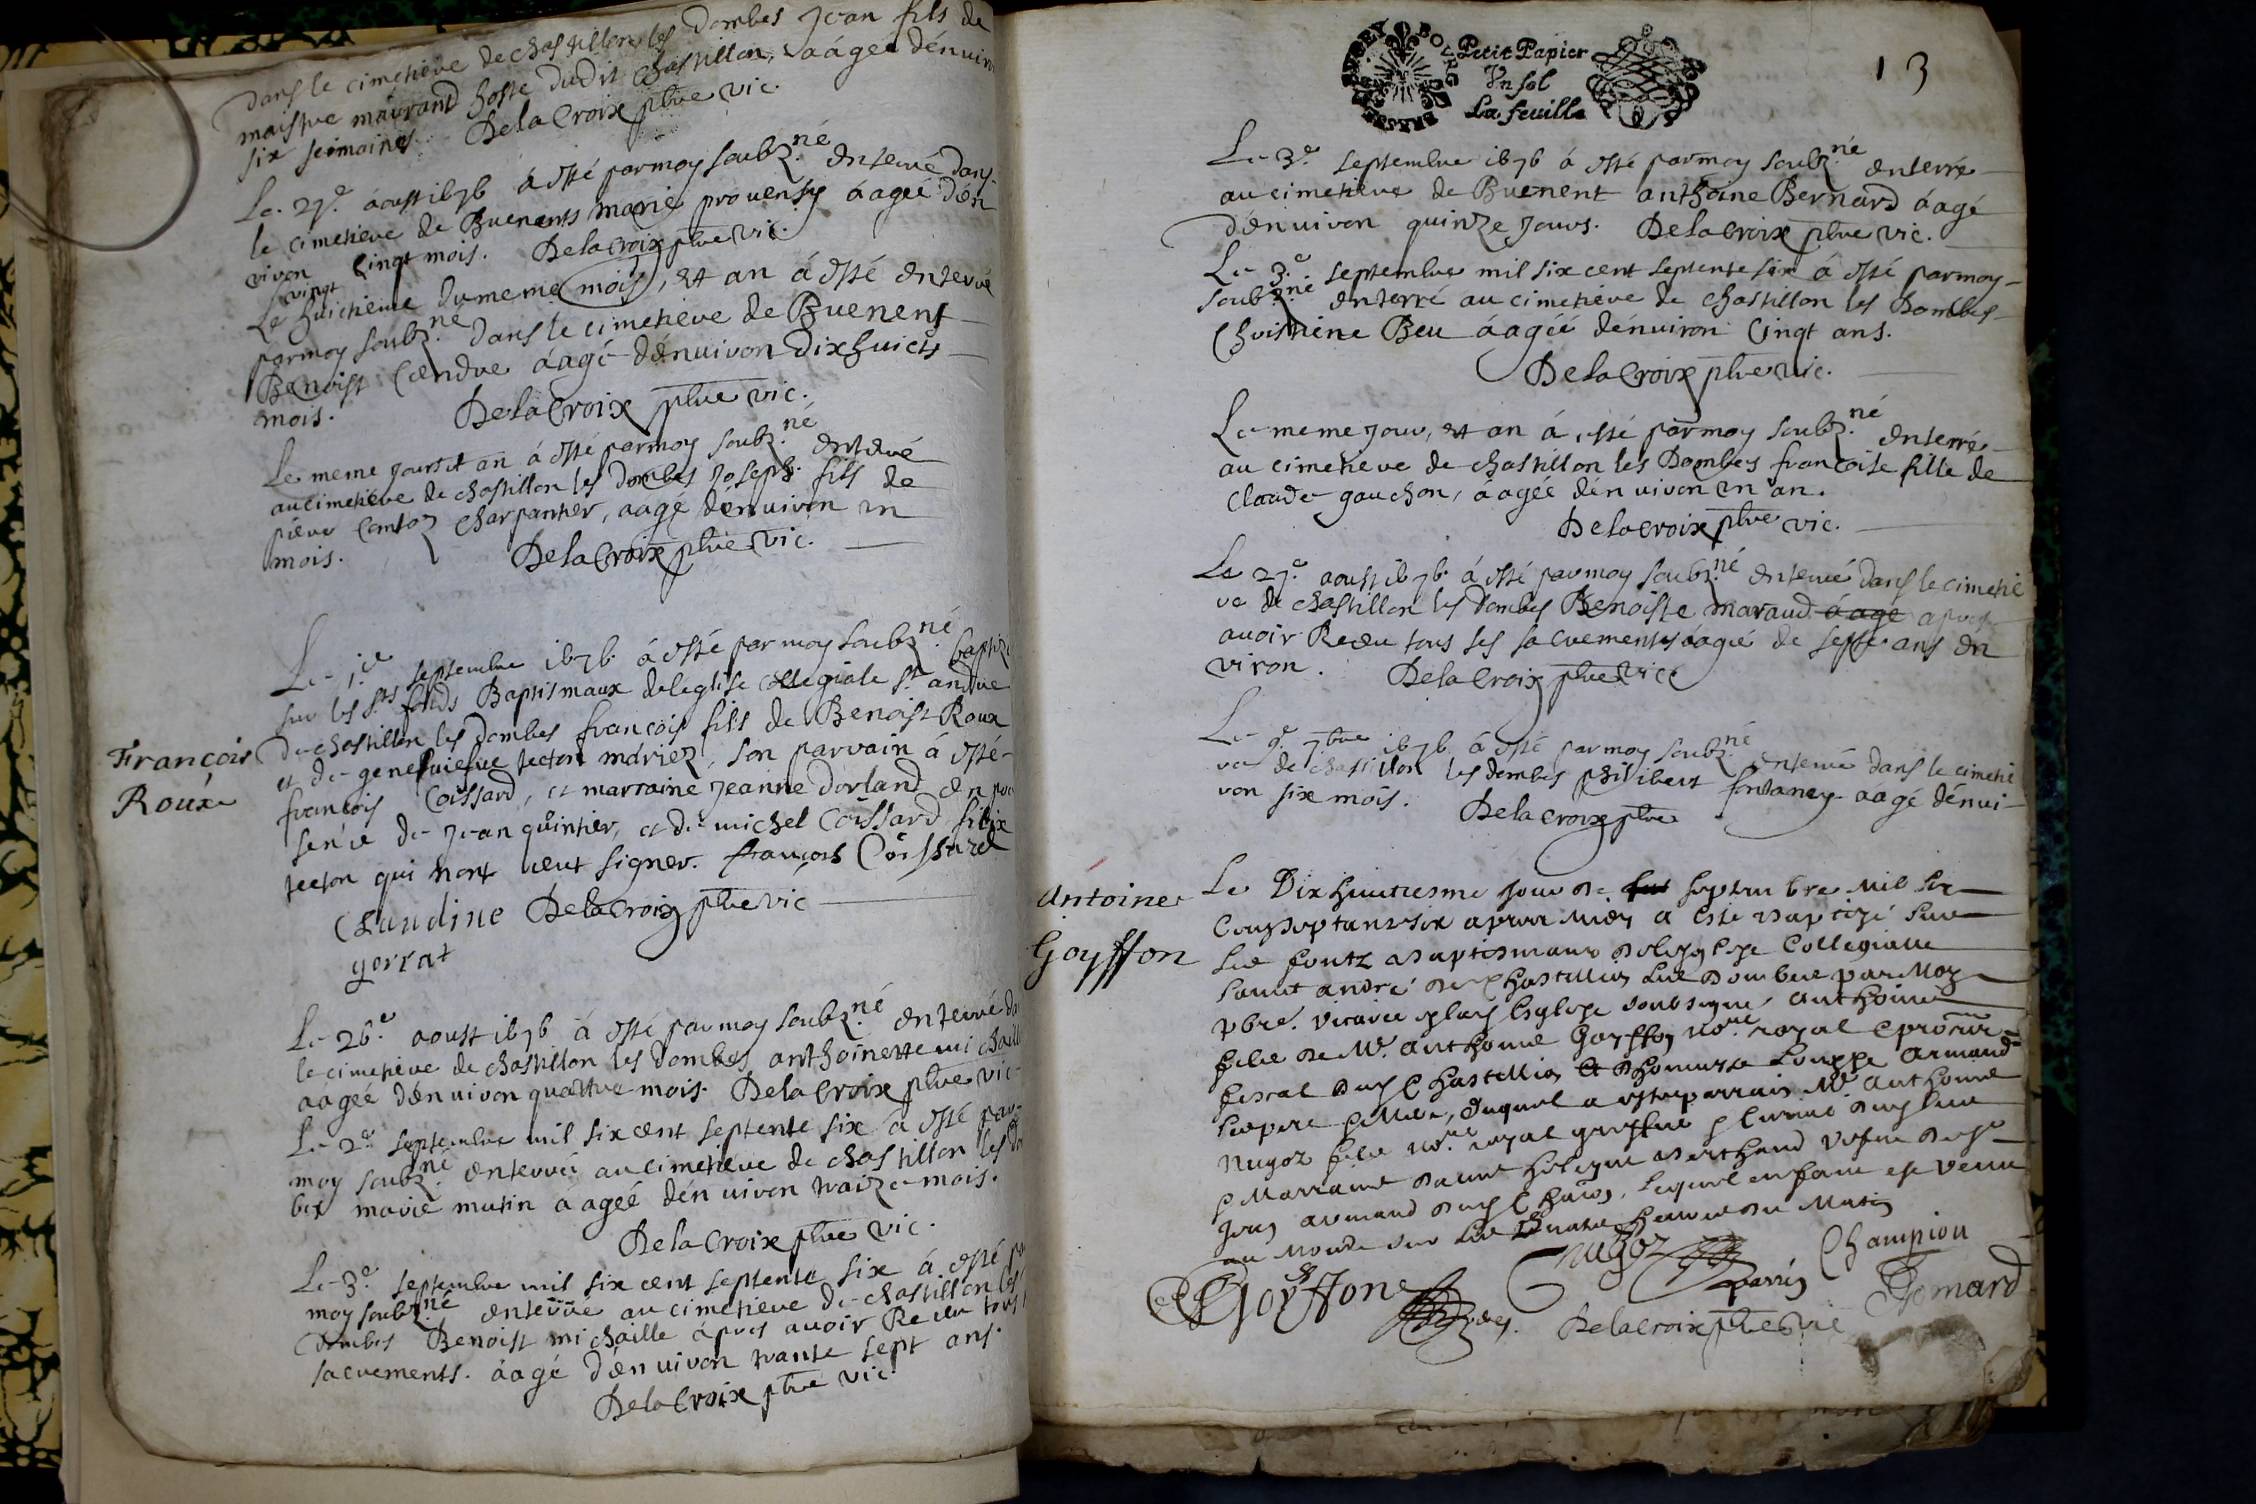 dans le cimetiere de chastillon les Dombes Jean fils de
maistre maurand hoste dudit chastillon, aágé dénuiro
six semaines. Delacroix pbre vic.
Le 27.e áoust 1676 á esté par moy soubz.né enterré dans
le cimetiere de Buenents marie prouensy áageé dén
viron cingt mois. Delacroix pbre vic.
vingt
Le huictieme du meme mois, et an á esté enterré
par moy soubz.né dans le cimetiere de Buenent
Benoist Cendre áagé dénuiron dixhuict
mois. Delacroix pbre vic.
Le meme jour et an á esté par moy soubz.né enterré
au cimetiere de chastillon les Dombes Joseph fils de
piere charpantier, aagé dénuiron un
mois. Delacroix pbre vic.
François
Roux
Le 1.er septembre 1676 á esté par moy soubz.né baptizé
sur les s.ts fonds Baptismaux de leglise collegiale s.t andre
de chastillon les dombes francois fils de Benoist Roux
et de geneuiefue tecton mariez, son parrain á esté
francois Coissard, et marraine Jeanne dorland en pre
sence de Jean quintier, et de michel Coissard, felix
tecton qui nont sceut signer. françois Coissard
Claudine Delacroix pbre vic
gorrat
Le 26.e aoust 1676 á esté par moy soubz.né enterré da
le cimetiere de chastillon les Dombes anthoinette mi chaill
aágeé dénuiron quattre mois. Delacroix pbre vic.
Le 2.e septembre mil six cent septente six á esté par
moy soubz.né enterreé au cimetiere de chastillon les Do
bes marie mutin aageé dénuiron traize mois.
Delacroix pbre vic.
Le 3.e septembre mil six cent septente six á esté p
moy soubz.né enterré au cimetiere de chastillon les
Dombes Benoist michaille ápres auoir Receu tous
sacrements. áagé dénuiron trante sept ans.
Delacroix pbre vic.
BOURG BRESSE BUGEY
Petit Papier
Vn sol
La feuille
13
Le 3.e septembre 1676 á esté par moy soubz.né enterré
au cimetiere de Buenent anthoine Bernard áagé
dénuiron quinze jours. Delacroix pbre vic.
Le 3.e septembre mil six cent septente six á esté par moy
soubz.né enterré au cimetiere de chastillon les Dombes
Christiene Beu áageé dénuiron Cingt ans.
Delacroix pbre vic.
Le meme jour, et an á esté par moy soubz.né enterré
au cimetiere de chastillon les Dombes francoise fille de
Claude gauchon, áageé dénuiron un an.
Delacroix pbre vic.
Le 27.e aoust 1676 á esté par moy soubz.né enterré dans le cimetie
re de chastillon les Dombes Benoiste maraud áage apres
auoir Receu tous ses sacrements áageé de septe ans en
viron. Delacroix pbre vic
Le 9.e 7bre 1676 á esté par moy soubz.né enterré dans le cimetie
re de chastillon les dombes philibert fontaney aagé dénui
ron six mois. Delacroix pbre
Antoine
Goyffon
Le Dixhuictiesme jour de septembre mil six
Cens septante six apres midy a esté baptizé sur
les fontz baptismaux de leglise Collegialle
saint andré de Chastillon les Dombes par moy
pbre. vicaire en lad eglise soubsigné, anthoine
filz de M.e anthoine Goyffon no.re royal procur
fiscal dud Chastillon et Armand
ses pere et mere, duquel a esté parrain M.e anthoine
Nugoz filz no.re royal greffier
et marraine berthaud vefue de
Jean armand dud Chastillon, lequel enfant est venu
au monde sur les quatre heures du matin
Goyffon Nugoz parrin Champion
Delacroix pbre vic Jomard